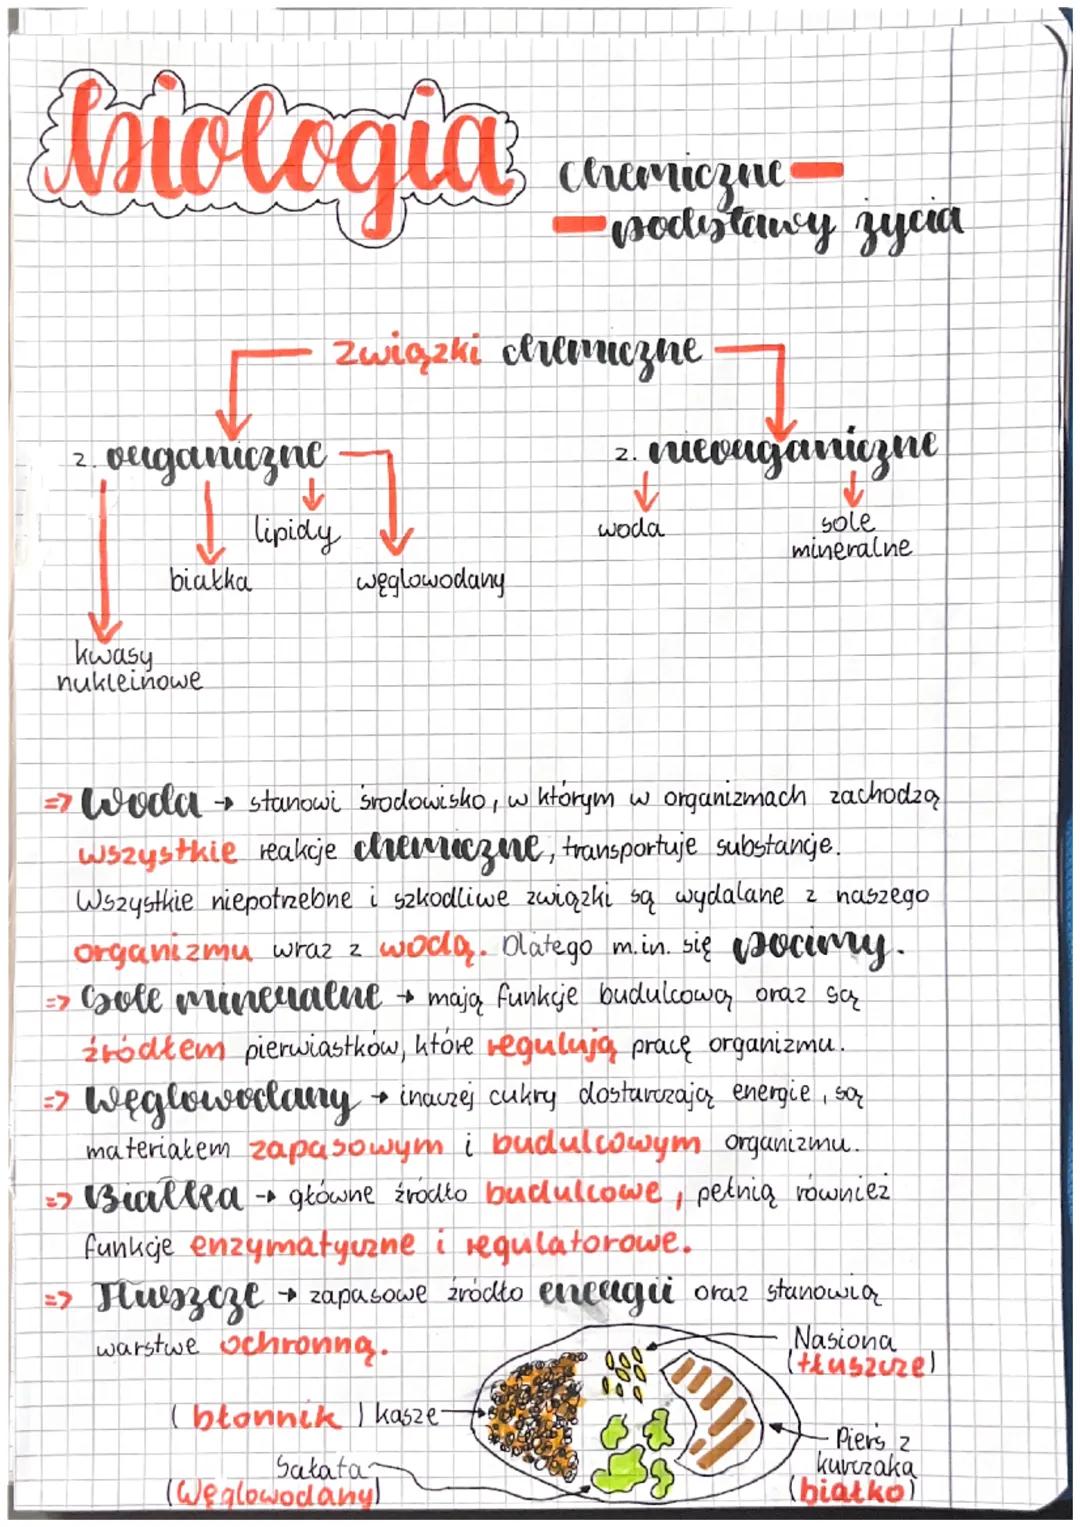 biologia
chemiczne-
-podstawy życia
Związki chemiczne
2. organiczne
2. nieorganiczne
lipidy
woda
sole
mineralne
białka
węglowodany
kwasy
nukleinowe
=> Woda → stanowi środowisko, w którym w organizmach zachodzą
wszystkie reakcje chemiczne, transportuje substancje.
Wszystkie niepotrzebne i szkodliwe związki są wydalane z naszego
organizmu wraz z wodą. Dlatego m.in. się pocimy.
=> Sole mineralne → mają funkcje budulcową oraz są
źródłem pierwiastków, które regulują pracę organizmu.
=> Węglowodany → inaczej cukry dostarczają energie, są
materiałem zapasowym i budulcowym organizmu.
=> Białka → główne źródło budulcowe, pełnią również
funkcje enzymatyczne i regulatorowe.
=> Tłuszcze → zapasowe źródło energii oraz stanowią
warstwe ochronną.
Nasiona
(tłuszcze)
(błonnik) kasze
Pierś z
kurczaka
(białko)
Sałata
(Węglowodany)